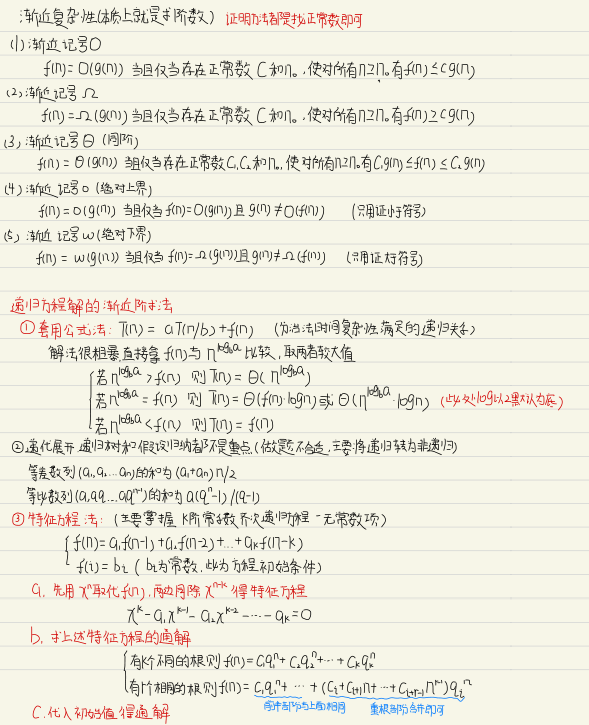 渐近复杂性(本质上就是求阶数) 证明方法都是找正常数即可
(1) 渐近记号O
f(n) = O(g(n)) 当且仅当存在正常数 C和n₀,使对所有n≥n₀有f(n) ≤ cg(n)
(2) 渐近记号 Ω
f(n) = Ω(g(n)) 当且仅当存在正常数 C和n₀,使对所有n≥n₀有f(n) ≥ cg(n)
(3) 渐近记号 Θ (同阶)
f(n) = Θ(g(n)) 当且仅当存在正常数C₁,C₂和n₀,使对所有n≥n₀有C₁g(n) ≤ f(n) ≤ C₂g(n)
(4) 渐近记号o (绝对上界)
f(n) = o(g(n)) 当且仅当f(n)=O(g(n))且 g(n) ≠ O(f(n)) (只用证小符号)
(5) 渐近记号 w (绝对下界)
f(n) = w(g(n)) 当且仅当 f(n)=Ω(g(n))且g(n)≠Ω(f(n)) (只用证大符号)
递归方程解的渐近阶求法
① 套用公式法: T(n) = aT(n/b) + f(n) (为分治法时间复杂性满足的递归关系)
解法很粗暴直接拿f(n)与 n^{log_b a} 比较,取两者较大值
若 n^{log_b a} > f(n) 则 T(n) = Θ(n^{log_b a})
若 n^{log_b a} = f(n) 则 T(n) = Θ(f(n)·logn)或 Θ(n^{log_b a}·logn) (此处log以2默认为底)
若 n^{log_b a} < f(n) 则 T(n) = f(n)
② 迭代展开 递归树和假设归纳都不是重点(做题不合适,主要将递归转为非递归)
等差数列(a₁,a₂...aₙ)的和为 (a₁+aₙ)n/2
等比数列(a,aq...,aqⁿ⁻¹)的和为 a(qⁿ-1)/(q-1)
③ 特征方程法: (主要掌握 K阶常系数齐次递归方程 - 无常数项)
f(n) = a₁f(n-1) + a₂f(n-2) + ... + aₖf(n-k)
f(i) = bᵢ (bᵢ为常数,此为方程初始条件)
a. 先用 xⁿ取代f(n),两边同除 xⁿ⁻ᵏ 得特征方程
xᵏ - a₁xᵏ⁻¹ - a₂xᵏ⁻² - ... - aₖ = 0
b. 求上述特征方程的通解
有k个不同的根则 f(n) = C₁q₁ⁿ + C₂q₂ⁿ + ... + Cₖqₖⁿ
有r个相同的根则f(n) = C₁q₁ⁿ + ... + (Cᵢ + Cᵢ₊₁n + ... + Cᵢ₊ᵣ₋₁nʳ⁻¹)qᵢⁿ
重根部分合并即可
C. 代入初始值得通解